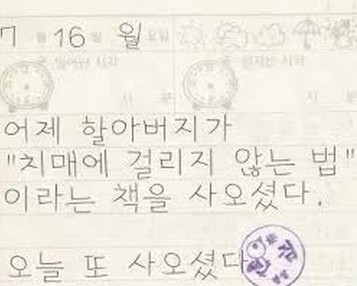 7 월 16 일 월 요일
일어난 시각
잠자는 시각
시 분
시
어제 할아버지가
"치매에 걸리지 않는 법"
이라는 책을 사오셨다.
오늘 또 사오셨다